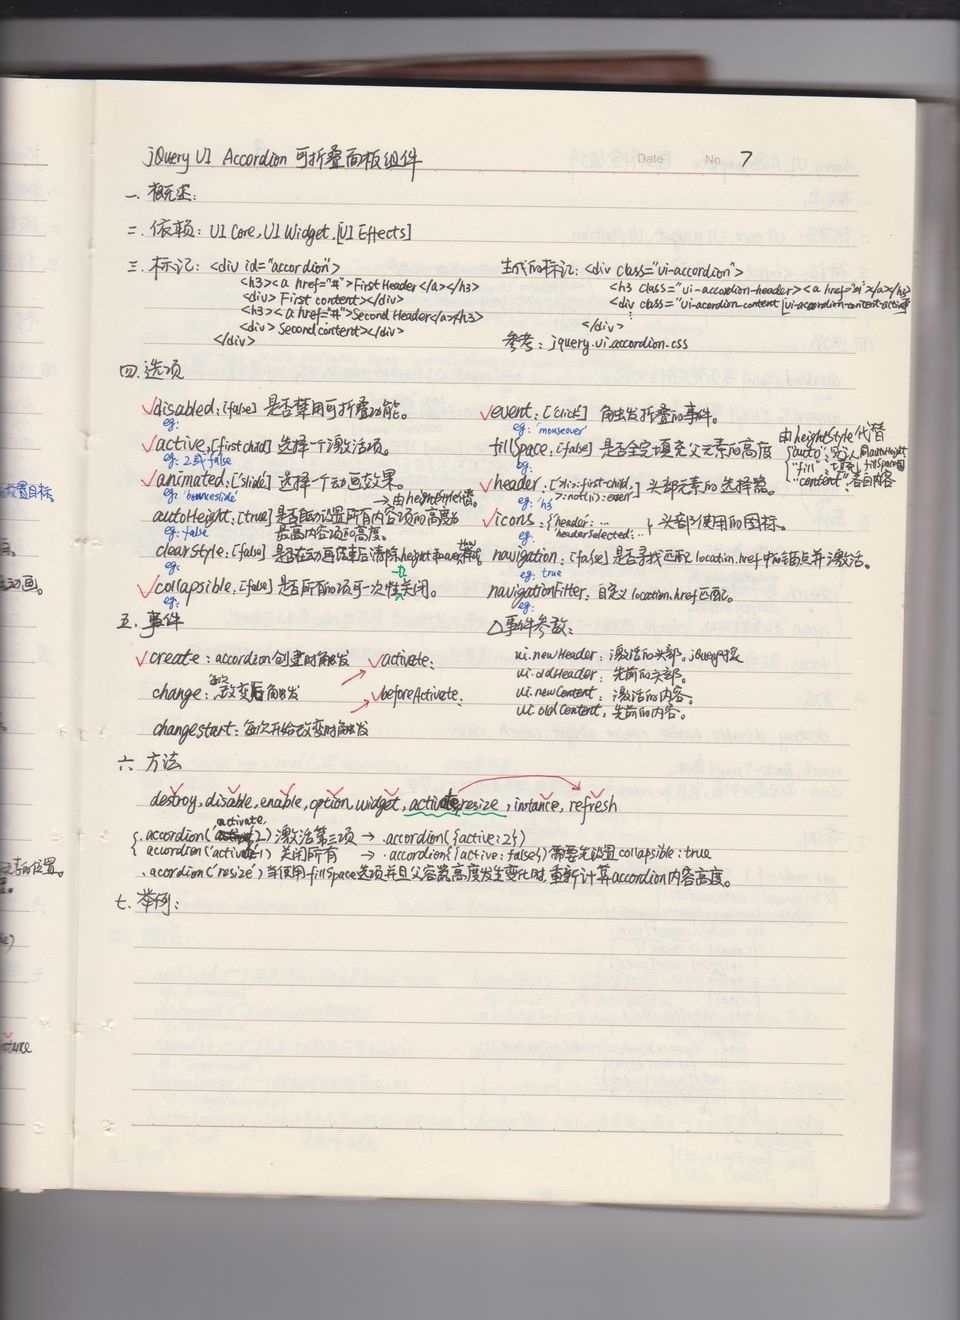 jQuery UI Accordion 可折叠面板组件
Date No. 7
一. 概述:
二. 依赖: UI Core, UI Widget, [UI Effects]
三. 标记: <div id="accordion">
<h3><a href="#">First Header</a></h3>
<div> First content></div>
<h3><a href="#">Second Header</a></h3>
<div> Second content></div>
</div>
生成的标记: <div class="ui-accordion">
<h3 class="ui-accordion-header><a href="#"></a></h3>
<div class="ui-accordion-content [ui-accordion-content-active]
⋮
</div>
参考: jquery.ui.accordion.css
四. 选项
✓disabled: [false] 是否禁用可折叠功能。
eg:
✓active, [first child] 选择一个激活项。
eg: 2或false
✓animated: [slide] 选择一个动画效果。
eg: 'bounceslide'
→由heightStyle代替。
autoHeight: [true] 是否自动设置所有内容项的高度为
eg: false 最高内容项的高度。
clearStyle: [false] 是否在动画结束后清除height和
eg:
✓collapsible, [false] 是否所有的项可一次性关闭。
eg:
✓event: ['click'] 触发折叠的事件。
eg: 'mouseover'
fillSpace, [false] 是否全完填充父元素的高度
eg:
由heightStyle代替
"auto": 默认 同autoHeight
"fill": fillSpace同
"content": 看自内容
✓header: [>li>:first-child,
>:not(li):even] 头部元素的选择器。
eg: 'h3'
✓icons: {'header': ...
'headerSelected: ... } 头部使用的图标。
navigation: [false] 是否寻找匹配 location.href 中的锚点并激活。
eg: true
navigationFilter: 自定义 location.href匹配。
五. 事件
✓create: accordion创建时触发
change: 每次改变后触发
changestart: 每次开始改变时触发
✓activate:
✓beforeActivate:
△事件参数:
ui.newHeader: 激活的头部, jQuery对象
ui.oldHeader: 先前的头部。
ui.newContent: 激活的内容。
ui.oldContent, 先前的内容。
六. 方法
destroy, disable, enable, option, widget, activate, resize, instance, refresh
.accordion('activate, 2) 激活第三项 → .accordion({active:2})
accordion('activate'-1) 关闭所有 → .accordion({active:false}) 需要先设置collapsible:true
.accordion('resize') 当使用fillSpace选项并且父容器高度发生变化时, 重新计算accordion内容高度。
七. 举例:
设置目标,
动画。
的位置。
instance